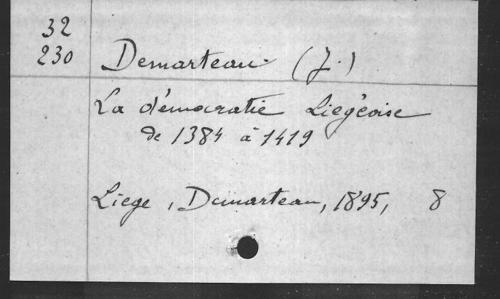 32
230
Demarteau (J.)
La démocratie Liegéoise
de 1384 à 1419
Liege, Demarteau, 1895, 8